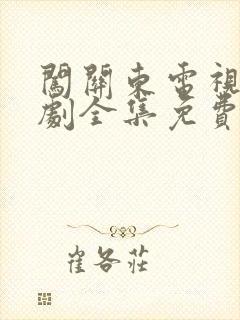 闖關東電視
劇全集免費
崔各莊